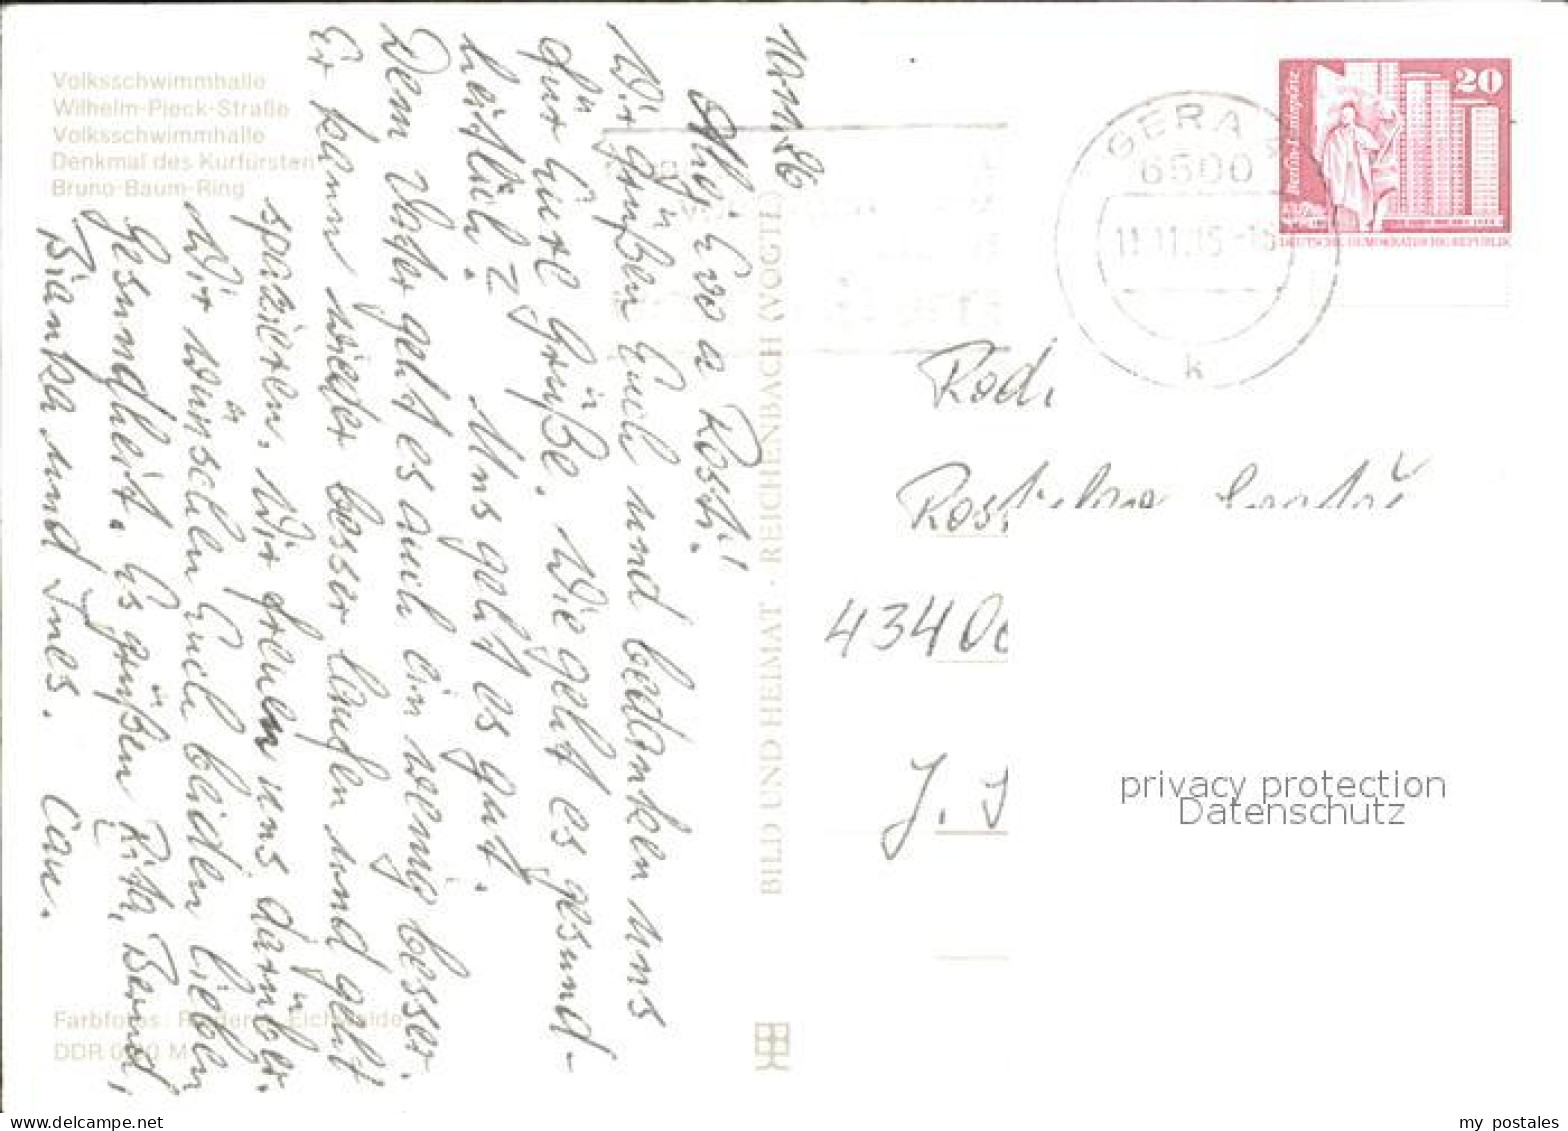 Volksschwimmhalle
Wilhelm-Pieck-Straße
Volksschwimmhalle
Denkmal des Kurfürsten
Bruno-Baum-Ring
10.11.86
Eva a Rosti!
Wir grüßen Euch und bedanken uns
für Eure Grüße. Wie geht es gesund-
heitlich? Uns geht es gut.
Dem Vater geht es auch ein wenig besser.
Er kann wieder besser laufen und geht
spazieren. Wir freuen uns darüber.
Wir wünschen Euch beiden lieben
Gesundheit. Es grüßen Rita, Bernd,
Bianka und Ines. Cau.
Farbfotos:
DDR M
BILD UND HEIMAT · REICHENBACH (VOGTL)
GERA
6500
11.11.
k
20
Berlin-Leninplatz
DEUTSCHE DEMOKRATISCHE REPUBLIK
Rod.
434 0
J.
privacy protection
Datenschutz
my postales